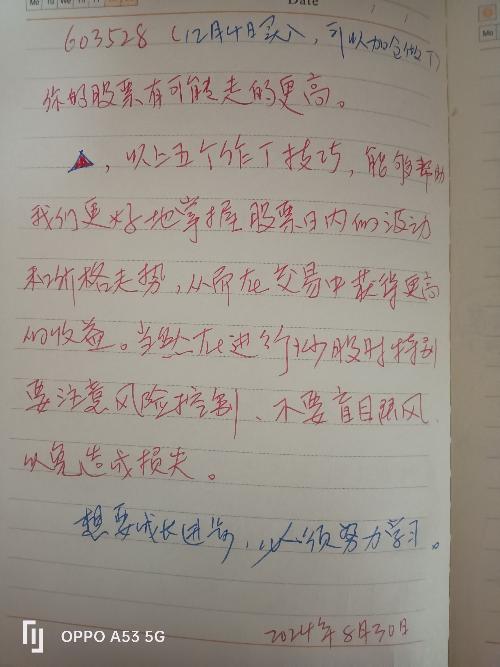 Mo Tu We Th Fr Sa Su
Date / /
Mo
603528（12月4日买入，可以加仓做T）
你的股票有可能走的更高。
，以上五个作T技巧，能够帮助
我们更好地掌握股票日内的波动
和价格走势，从而在交易中获得更高
的收益。当然在进行炒股时特别
要注意风险控制、不要盲目跟风，
以免造成损失。
想要成长进步，必须努力学习。
2024年8月30日
OPPO A53 5G